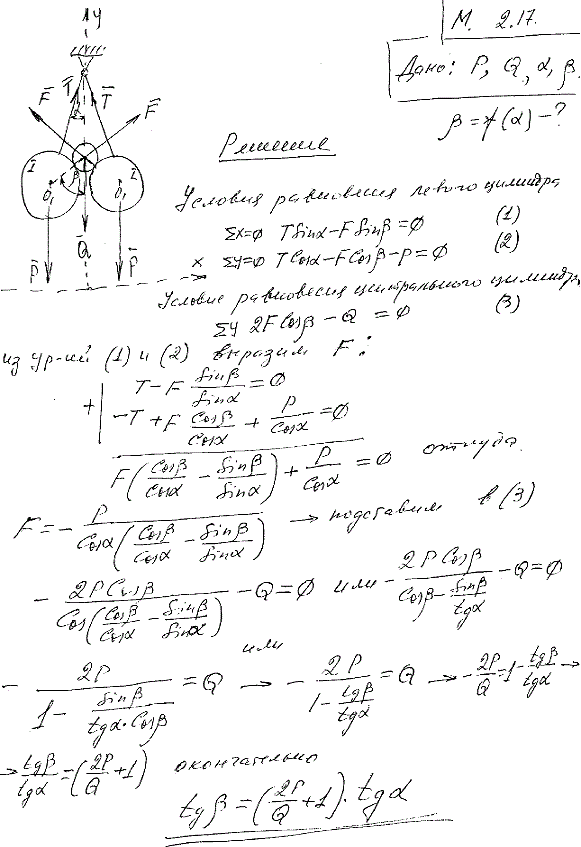 М. 2.17.
Дано: P, Q, α, β.
β = f(α) - ?
Решение
y
F̄ T̄ T̄ F̄
I β I
O₁ O₁
Q̄
P̄ P̄
x
Условия равновесия левого цилиндра
Σx=0 T Sinα - F Sinβ = 0 (1)
Σy=0 T Cosα - F Cosβ - P = 0 (2)
Условие равновесия центрального цилиндра
Σy 2F Cosβ - Q = 0 (3)
из ур-ий (1) и (2) выразим F:
T - F Sinβ/Sinα = 0
+ | -T + F Cosβ/Cosα + P/Cosα = 0
F(Cosβ/Cosα - Sinβ/Sinα) + P/Cosα = 0 откуда
F = - P/(Cosα(Cosβ/Cosα - Sinβ/Sinα)) → подставим в (3)
- 2P Cosβ/(Cos(Cosβ/Cosα - Sinβ/Sinα)) - Q = 0 или - 2P Cosβ/(Cosβ - Sinβ/tgα) - Q = 0
или
- 2P/(1 - Sinβ/(tgα·Cosβ)) = Q → - 2P/(1 - tgβ/tgα) = Q → - 2P/Q = 1 - tgβ/tgα →
→ tgβ/tgα = (2P/Q + 1) окончательно
tgβ = (2P/Q + 1)·tgα